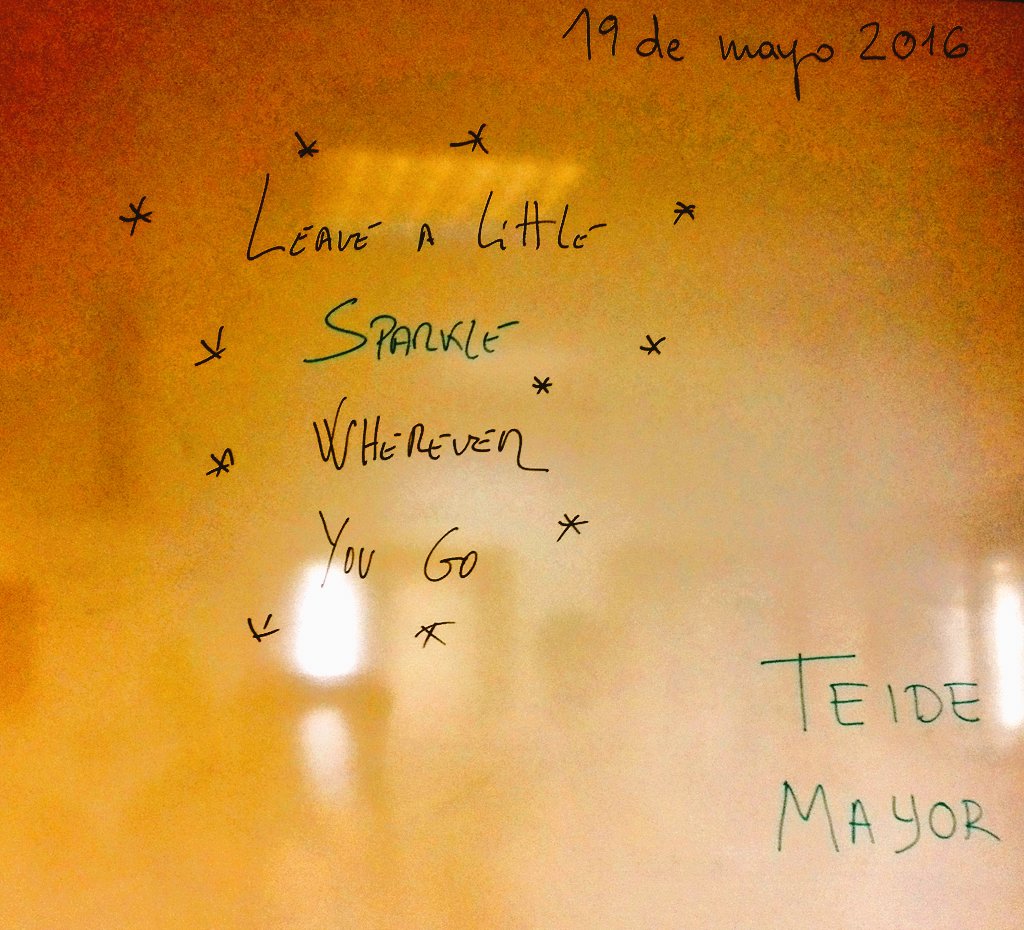 19 de mayo 2016
LEAVE A LittLE
SPARKLE
WHEREVER
YOU GO
TEIDE
MAYOR